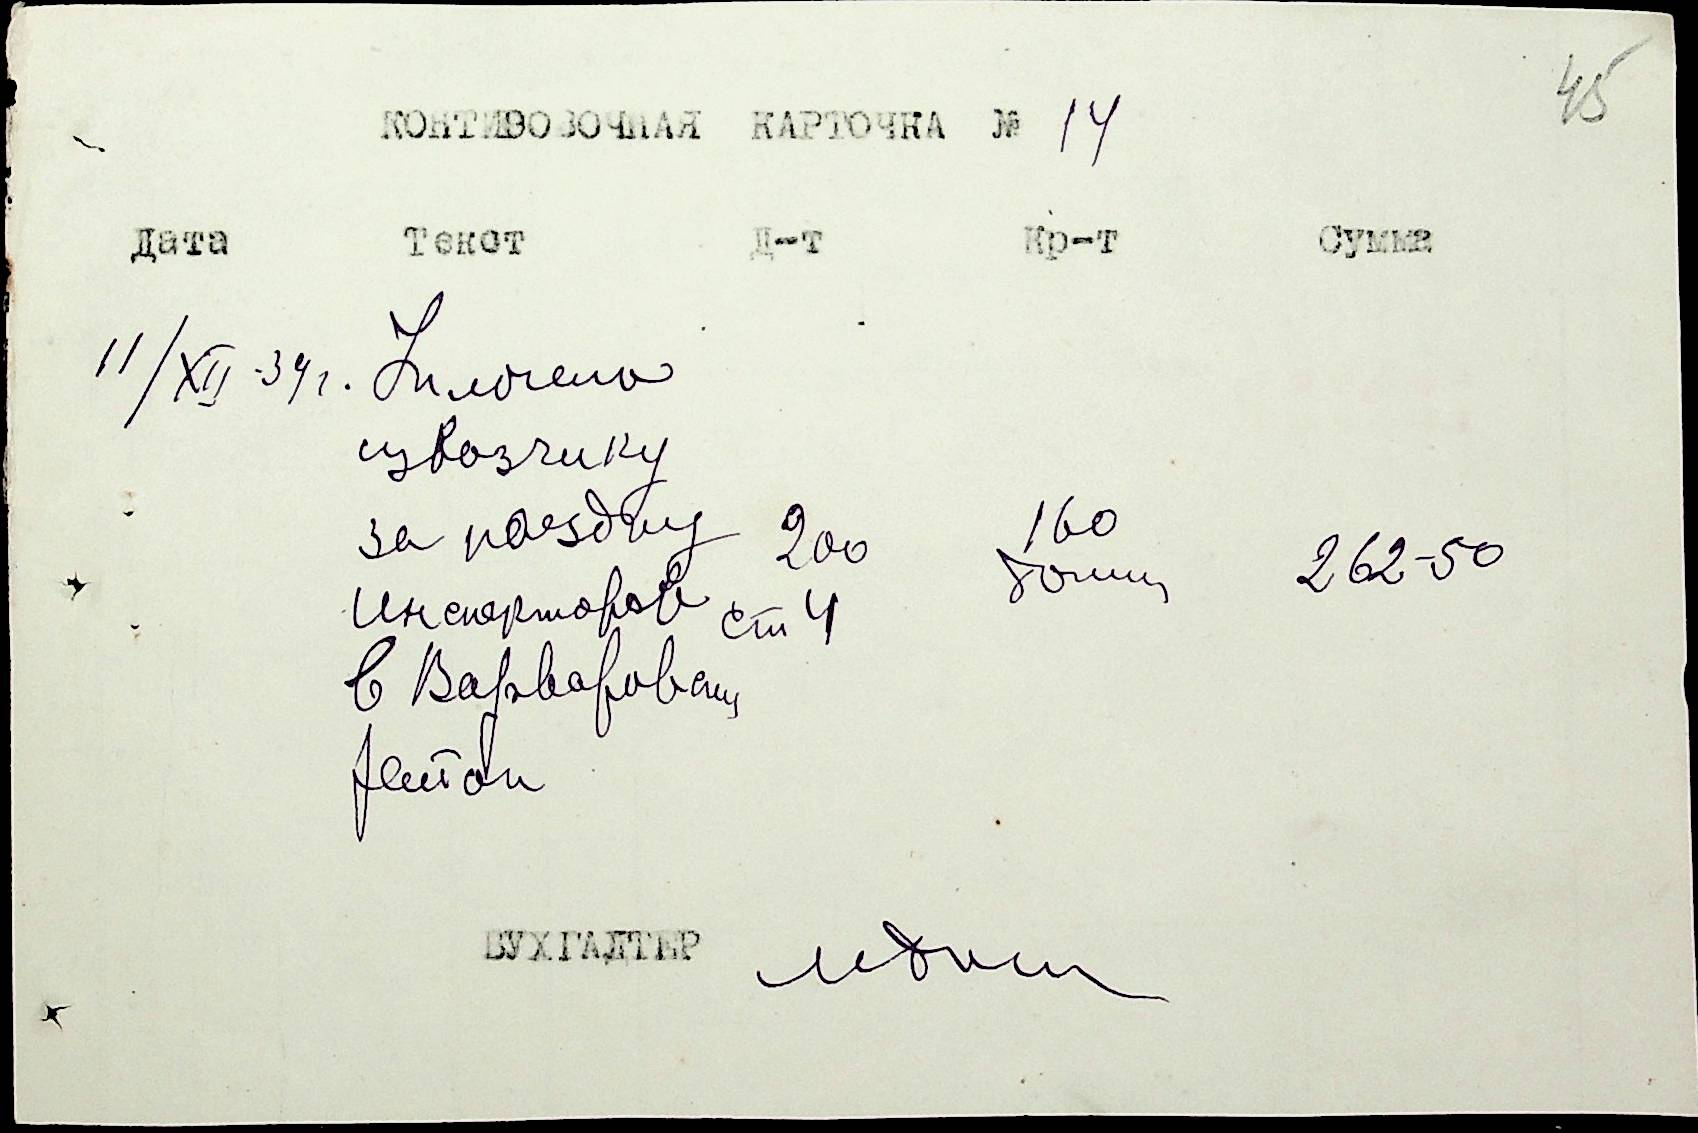 45
КОНТИРОВОЧНАЯ КАРТОЧКА № 14
Дата Текст Д-т Кр-т Сумма
11/XII-34г. Уплочено
извозчику
за поездку 200 160 262-50
инспекторов ст 4
в Варваровский
район
БУХГАЛТЕР